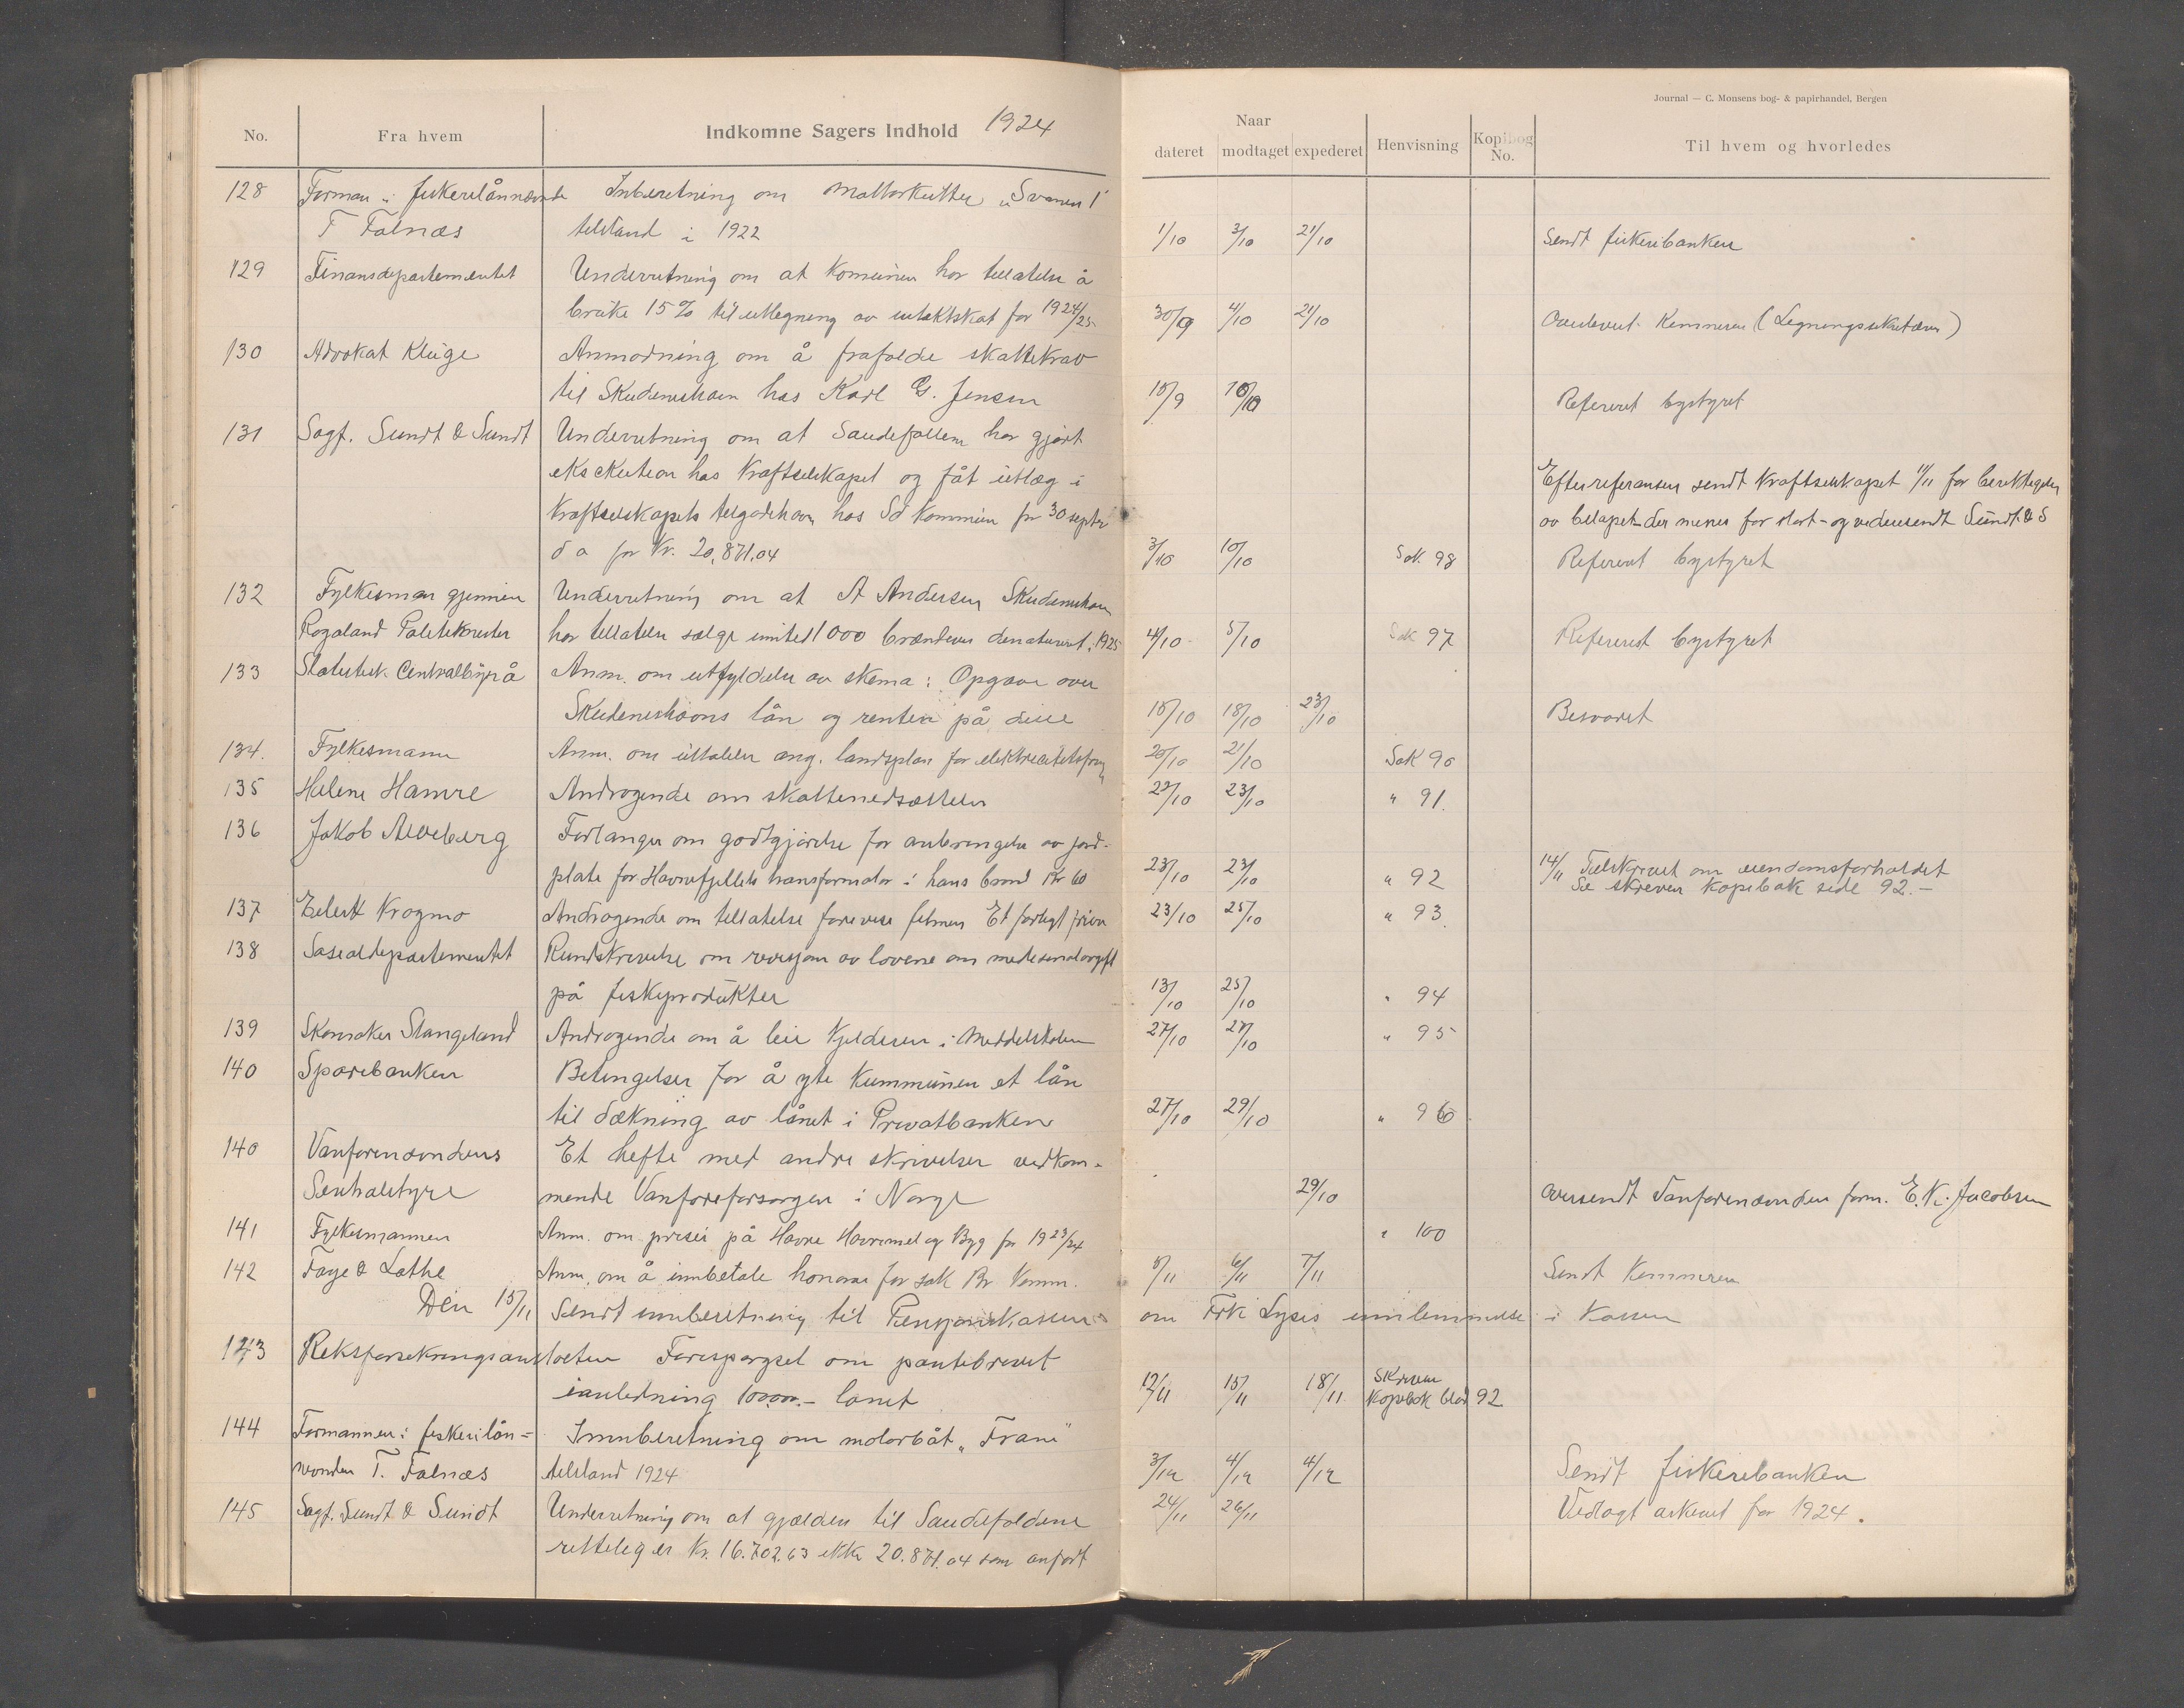 Journal — C. Monsens bog- & papirhandel, Bergen
No. Fra hvem Indkomne Sagers Indhold 1924 Naar dateret modtaget expederet Henvisning Kopibog No. Til hvem og hvorledes
128 Forman i fiskerilånnævnde Inberetning om Mottorkutter „Svanen I"
T Falnæs tilstand i 1922 1/10 3/10 21/10 Sendt fiskeribanken
129 Finansdepartementet Underretning om at Komunen har tillatelse å
bruke 15% til utlegning av intektskat for 1924/25 30/9 4/10 21/10 Overlevert Kemneren (Legningssekretæren)
130 Advokat Kluge Anmodning om å frafalde skattekrav
til Skudeneshavn hos Karl G. Jensen 15/9 10/10 Referert bystyret
131 Sagf. Sundt & Sundt Underretning om at Saudefallene har gjort
eksekution hos Kraftselskapet og fåt utlæg i Efter referansen sendt Kraftselskapet 1/11 for berektigelse
Kraftselskapets tilgodehavn hos Sd Kommune pr 30 septbr av beløpet der menes for stort - og videresendt Sundt & S
d a for Kr. 20,871.04 3/10 10/10 Sak 98 Referert bystyret
132 Fylkesman gjennem Underretning om at A Andersen Skudeneshavn
Rogaland Politikreder har tillatelse sælge inntil 1000 brændevin denaturert i 1925 4/10 5/10 Sak 97 Referert bystyret
133 Statistisk Centralbyrå Anm. om utfyldelse av skema: Opgave over
Skudeneshavns lån og renten på disse 15/10 18/10 23/10 Besvaret
134. Fylkesmann Anm. om uttalelse ang. landsplan for elektricitetsfors 20/10 21/10 Sak 90
135 Helene Hamre Andragende om skattenedsættelse 22/10 23/10 " 91.
136 Jakob Alveberg Forlanger om godtgjørelse for anbringelse av jord-
plate for Havnefjellets transformator i hans brønd Kr 60 23/10 23/10 " 92 14/11 Tilskrevet om eiendomsforholdet
Se skriven Kopibok side 92.-
137 Eilert Krogmo Andragende om tillatelse forevise filmen Et farligt frieri 23/10 25/10 " 93.
138 Sosialdepartementet Rundskrivelse om revisjon av lovene om medesinalavgift
på fiskeprodukter 13/10 25/10 " 94
139 Skomaker Stangeland Andragende om å leie Kjelderen i Middelskolen 27/10 27/10 " 95
140 Sparebanken Betingelser for å yte Kummunen et lån
til dækning av lånet i Privatbanken 27/10 29/10 " 96
140 Vanførenævndens Et hefte med andre skrivelser vedkom-
Sentralstyre mende Vanføreforsorgen i Norge 29/10 oversendt Vanførenævnden form. E. K. Jacobsen
141 Fylkesmannen Anm. om priser på Havre Havremel og Byg for 1923/24 " 100
142 Faye & Lothe Anm. om å innbetale honorar for sak Br Komm. 5/11 6/11 7/11 Sendt Kemneren
Den 15/11 Sendt innberetning til Pensjonskassen om Frk Lyses innlemmelse i Kassen
143 Riksforsekringsanstalten Forespørgsel om pantebrevet
i anledning 10000.- lånet 12/11 15/11 18/11 Skriven Kopibok blad 92
144 Formannen i fiskerilån- Innberetning om motorbåt „Fram"
nevnden T. Falnæs tilstand 1924 3/12 4/12 4/12 Sendt fiskeribanken
145 Sagf. Sundt & Sundt Underretning om at gjælden til Saudefaldene 24/11 26/11 Vedlagt arkivet for 1924.
rettelig er Kr. 16.702.63 ikke 20.871.04 som anført